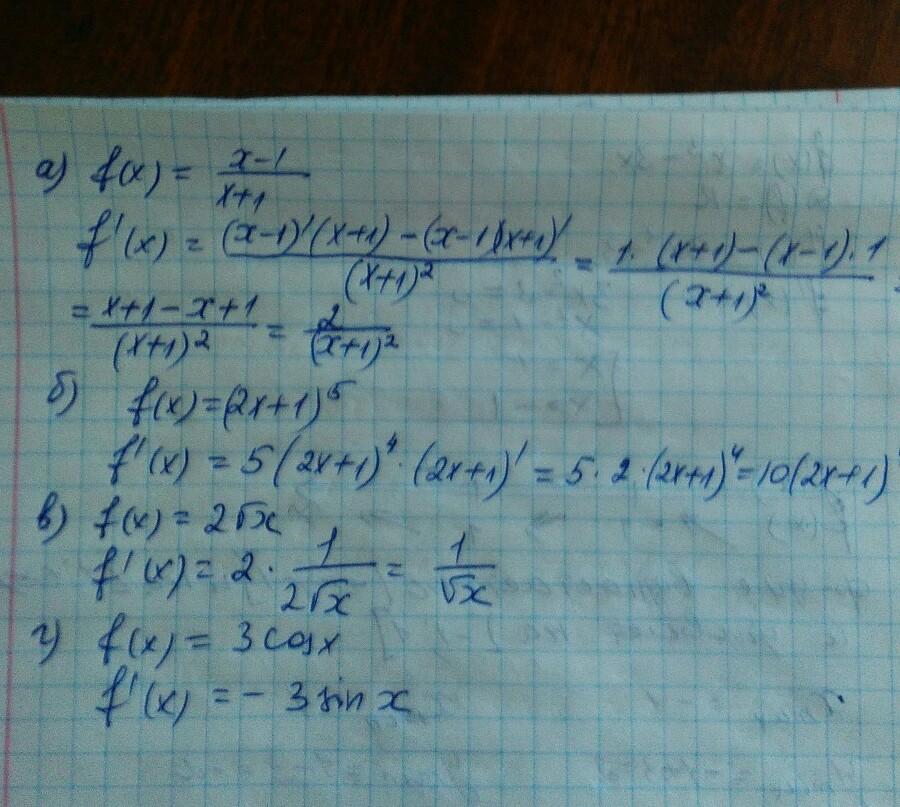 а) f(x) = (x-1)/(x+1)
f'(x) = ((x-1)'(x+1) - (x-1)(x+1)')/(x+1)² = (1·(x+1) - (x-1)·1)/(x+1)²
= (x+1-x+1)/(x+1)² = 2/(x+1)²
б) f(x) = (2x+1)⁵
f'(x) = 5(2x+1)⁴·(2x+1)' = 5·2·(2x+1)⁴ = 10(2x+1)
в) f(x) = 2√x
f'(x) = 2·1/(2√x) = 1/√x
г) f(x) = 3cosx
f'(x) = -3sin x